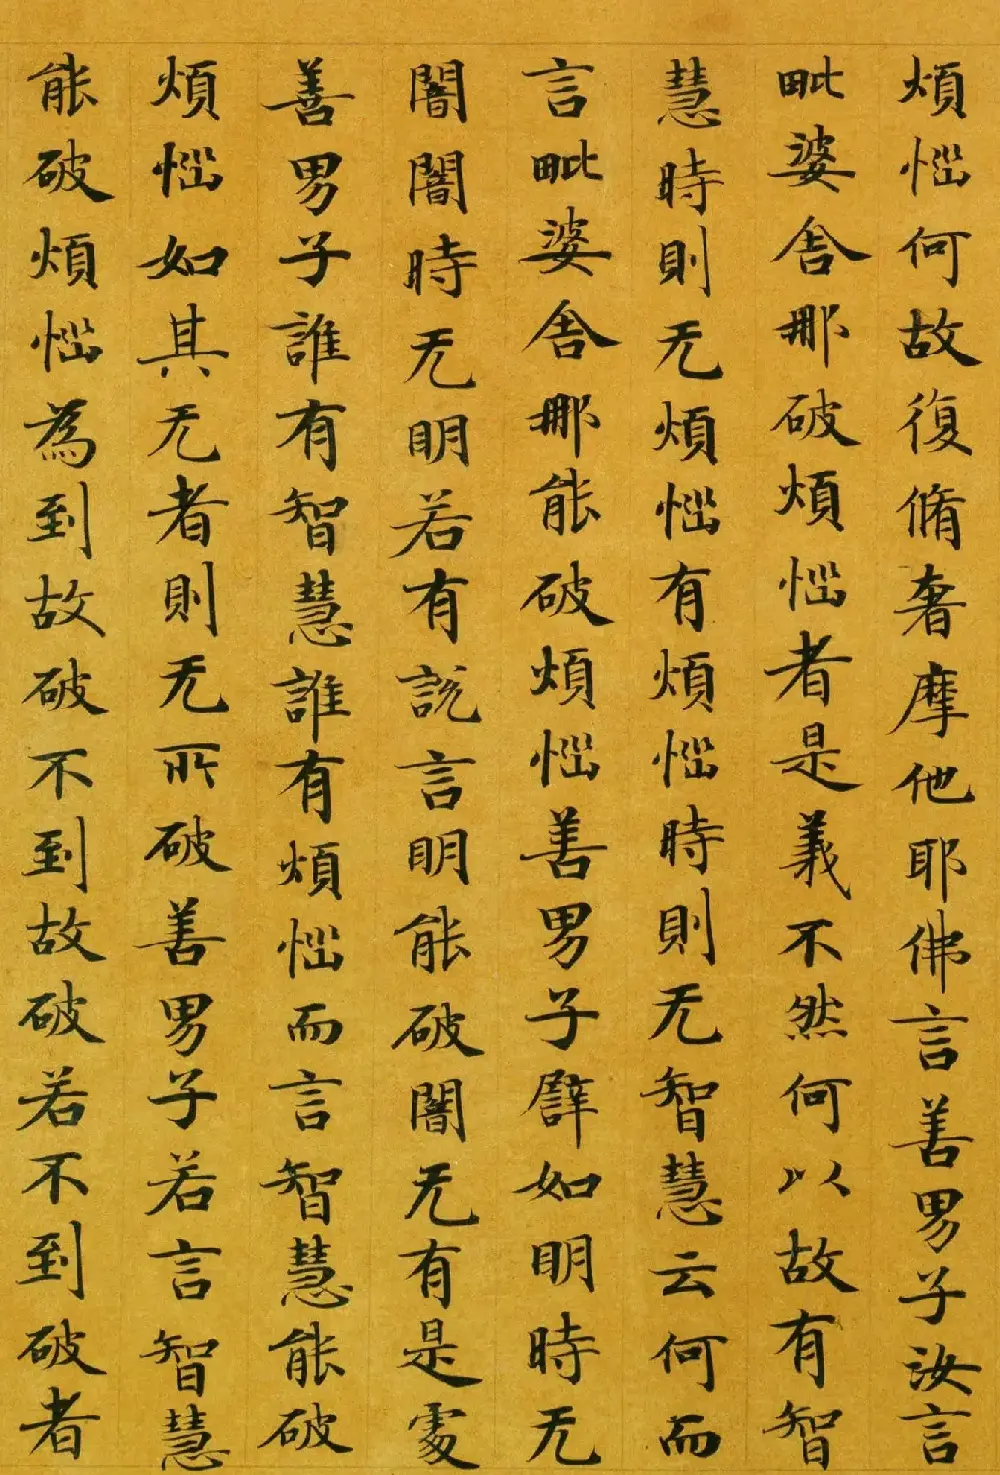 煩惱何故復脩奢摩他耶佛言善男子汝言
毗婆舍那破煩惱者是義不然何以故有智
慧時則无煩惱有煩惱時則无智慧云何而
言毗婆舍那能破煩惱善男子譬如明時无
闇闇時无明若有說言明能破闇无有是處
善男子誰有智慧誰有煩惱而言智慧能破
煩惱如其无者則无所破善男子若言智慧
能破煩惱為到故破不到故破若不到破者